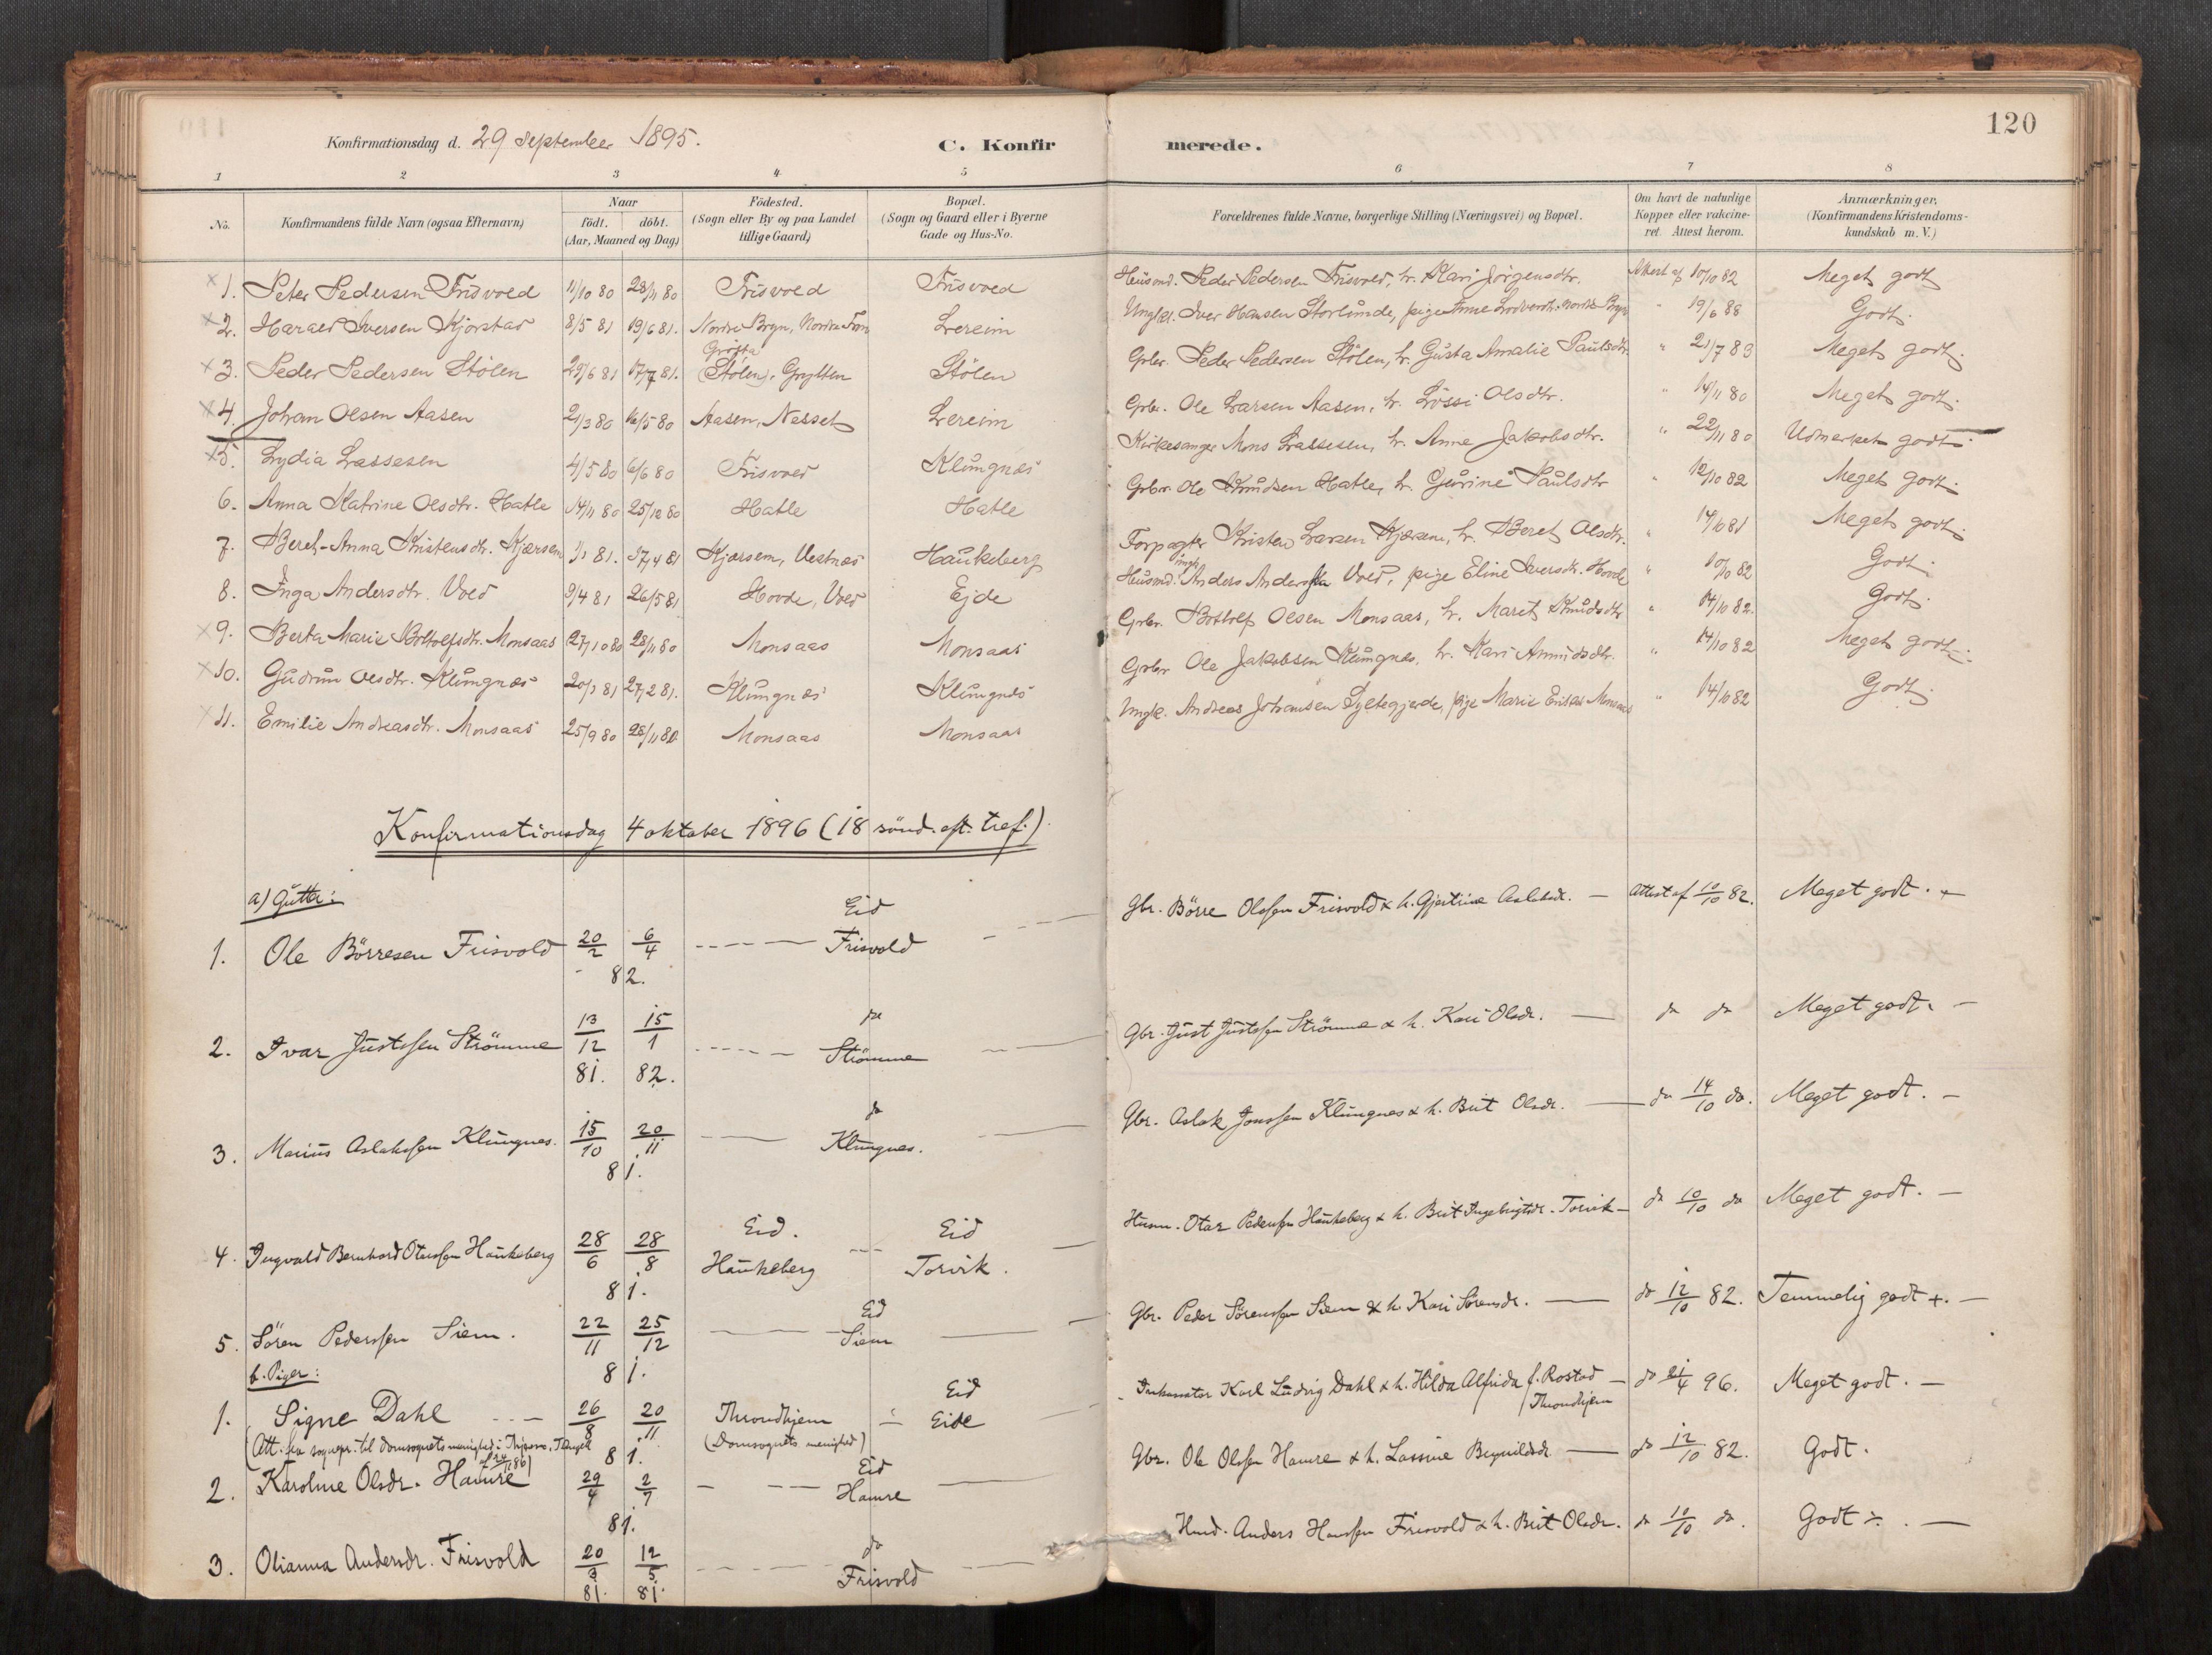 120
Konfirmationsdag d. 29 September 1895.
C. Konfirmerede.
1 2 3 4 5 6 7 8
No. Konfirmandens fulde Navn (ogsaa Efternavn) Naar födt. döbt. (Aar, Maaned og Dag) Födested. (Sogn eller By og paa Landet tillige Gaard) Bopæl. (Sogn og Gaard eller i Byerne Gade og Hus-No. Forældrenes fulde Navne, borgerlige Stilling (Næringsvei) og Bopæl. Om havt de naturlige Kopper eller vakcineret. Attest herom. Anmærkninger, (Konfirmandens Kristendomskundskab m. V.)
1. Peter Pedersen Frisvold 11/10 80 28/11 80 Frisvold Frisvold Husmd. Peder Pedersen Frisvold, h. Kari Jörgensdtr. Attest af 10/10 82 Meget godt
2. Harald Iversen Kjorstad 8/5 81 19/6 81. Nordre Bryn, Nordre Fron Lereim Ungkl. Iver Hansen Storlunde, pige Anne nordre Bryn " 19/6 88 Godt.
3. Peder Pedersen Stölen 29/6 81 17/7 81. Gröfta (Stölen), Grytten Stölen Grbr. Peder Pedersen Stölen, h. Gusta Amalie Paulsdtr. " 21/7 83 Meget godt.
4. Johan Olsen Aasen 21/3 80 16/5 80 Aasen, Nesset Lereim Grbr. Ole Larsen Aasen, h. Lössi Olsdtr. " 14/11 80 Meget godt.
5. Lydia Lassesen 4/5 80 6/6 80 Frisvold Klungnæs Kirkesanger Mons Lassesen, h. Anne Jakobsdtr. " 22/11 80 Udmerket godt.
6. Anna Katrine Olsdtr. Hatle 14/11 80 25/12 80 Hatle Hatle Grbr. Ole Knudsen Hatle, h. Gurine Paulsdtr " 12/10 82 Meget godt.
7. Beret-Anna Kristensdtr. Kjærsem 1/1 81. 17/4 81 Kjærsem, Vestnæs Haukeberg Forpagter Kristen Larsen Kjærsem, h. Beret Olsdtr. " 14/6 81 Meget godt.
8. Inga Andersdtr. Vold 9/4 81 26/5 81 Hovde, Vold Ejde Husmd. Anders Vold, pige Eline Iversdtr. Hovde " 10/10 82 Godt.
9. Berta Marie Bottolfsdtr. Monsaas 27/10 80 28/11 80 Monsaas Monsaas Grbr. Bottolf Olsen Monsaas, h. Maret Knudsdtr " 14/10 82. Godt.
10. Gudrun Olsdtr. Klungnæs 20/1 81 27/2 81. Klungnæs Klungnes Grbr. Ole Jakobsen Klungnes, h. Kari Amundsdtr. " 14/10 82 Meget godt.
11. Emilie Andreasdtr. Monsaas 25/9 80 28/11 80. Monsaas Monsaas Ungk. Andreas Johansen Syltegjerde, pige Marie Monsaas " 14/10 82 Godt.
Konfirmationsdag 4 oktober 1896 (18 sönd. eft. tref.).
a) Gutter:
1. Ole Börresen Frisvold 20/2 6/4 82. Eid Frisvold Gbr. Börre Olssen Frisvold & h. Gjertrine Aslaksd. — Attest af 10/10 82. Meget godt. +
2. Ivar Justssen Strömme 13/12 81. 15/1 82. do Strömme Gbr. Just Justssen Strömme & h. Kari Olsdr. — do do Meget godt. —
3. Marius Aslakssen Klungnes. 15/10 20/11 81. do Klungnes. Gbr. Aslak Jonssen Klungnes & h. Brit Olsdr. — do 14/10 do. Meget godt. —
4. Ingvald Bernhard Otarssen Haukeberg 28/6 28/8 81. Eid. Haukeberg — Eid Torvik. Husm. Otar Pederssen Haukeberg & h. Brit Ingebrigtsdr. Torvik — do 10/10 do Meget godt. —
5. Sören Pederssen Siem. 22/11 25/12 81. Eid Siem Gbr. Peder Sörenssen Siem & h. Kari Sörensdr. — do 12/10 82. Temmelig godt +. —
b. Piger:
1. Signe Dahl 26/8 20/11 81. Throndhjem (Domsognets menighed) Eid Eide Karl Ludvig Dahl & h. Hilda Alfrida f. Rostad — Throndhjem do 21/4 96. Meget godt. —
(Att. fra sognepr. til domsognets menighed i
2. Karoline Olsdr. Hamre 29/4 2/7 81. Eid Hamre Gbr. Ole Olssen Hamre & h. Lassine — do 12/10 82. Godt.
3. Olianna Andersdr. Frisvold 20/3 81. 12/5 81. do Frisvold Husd. Anders Hanssen Frisvold & h. Brit Olsdr. do 10/10 do. Godt ÷. —